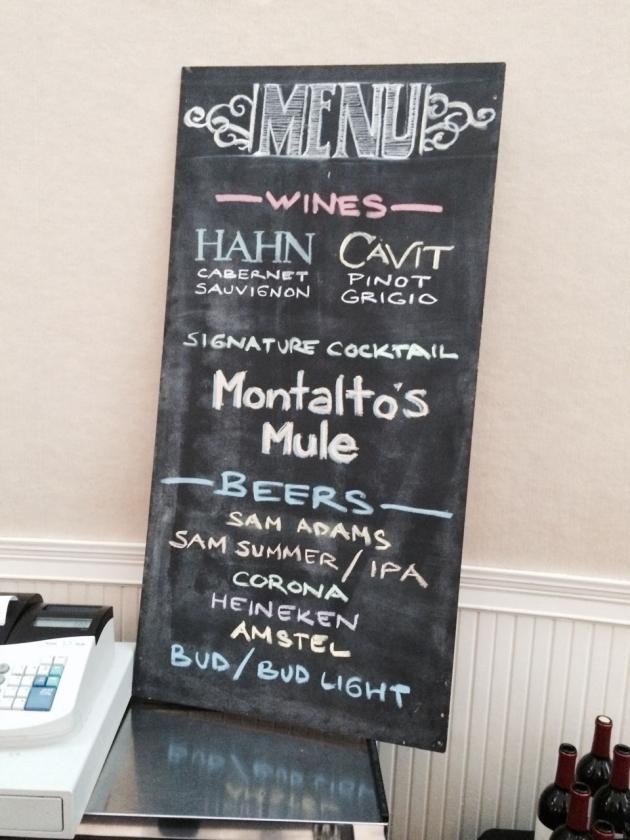 MENU
WINES
HAHN
CABERNET
SAUVIGNON
CAVIT
PINOT
GRIGIO
SIGNATURE COCKTAIL
Montalto's
Mule
BEERS
SAM ADAMS
SAM SUMMER / IPA
CORONA
HEINEKEN
AMSTEL
BUD / BUD LIGHT